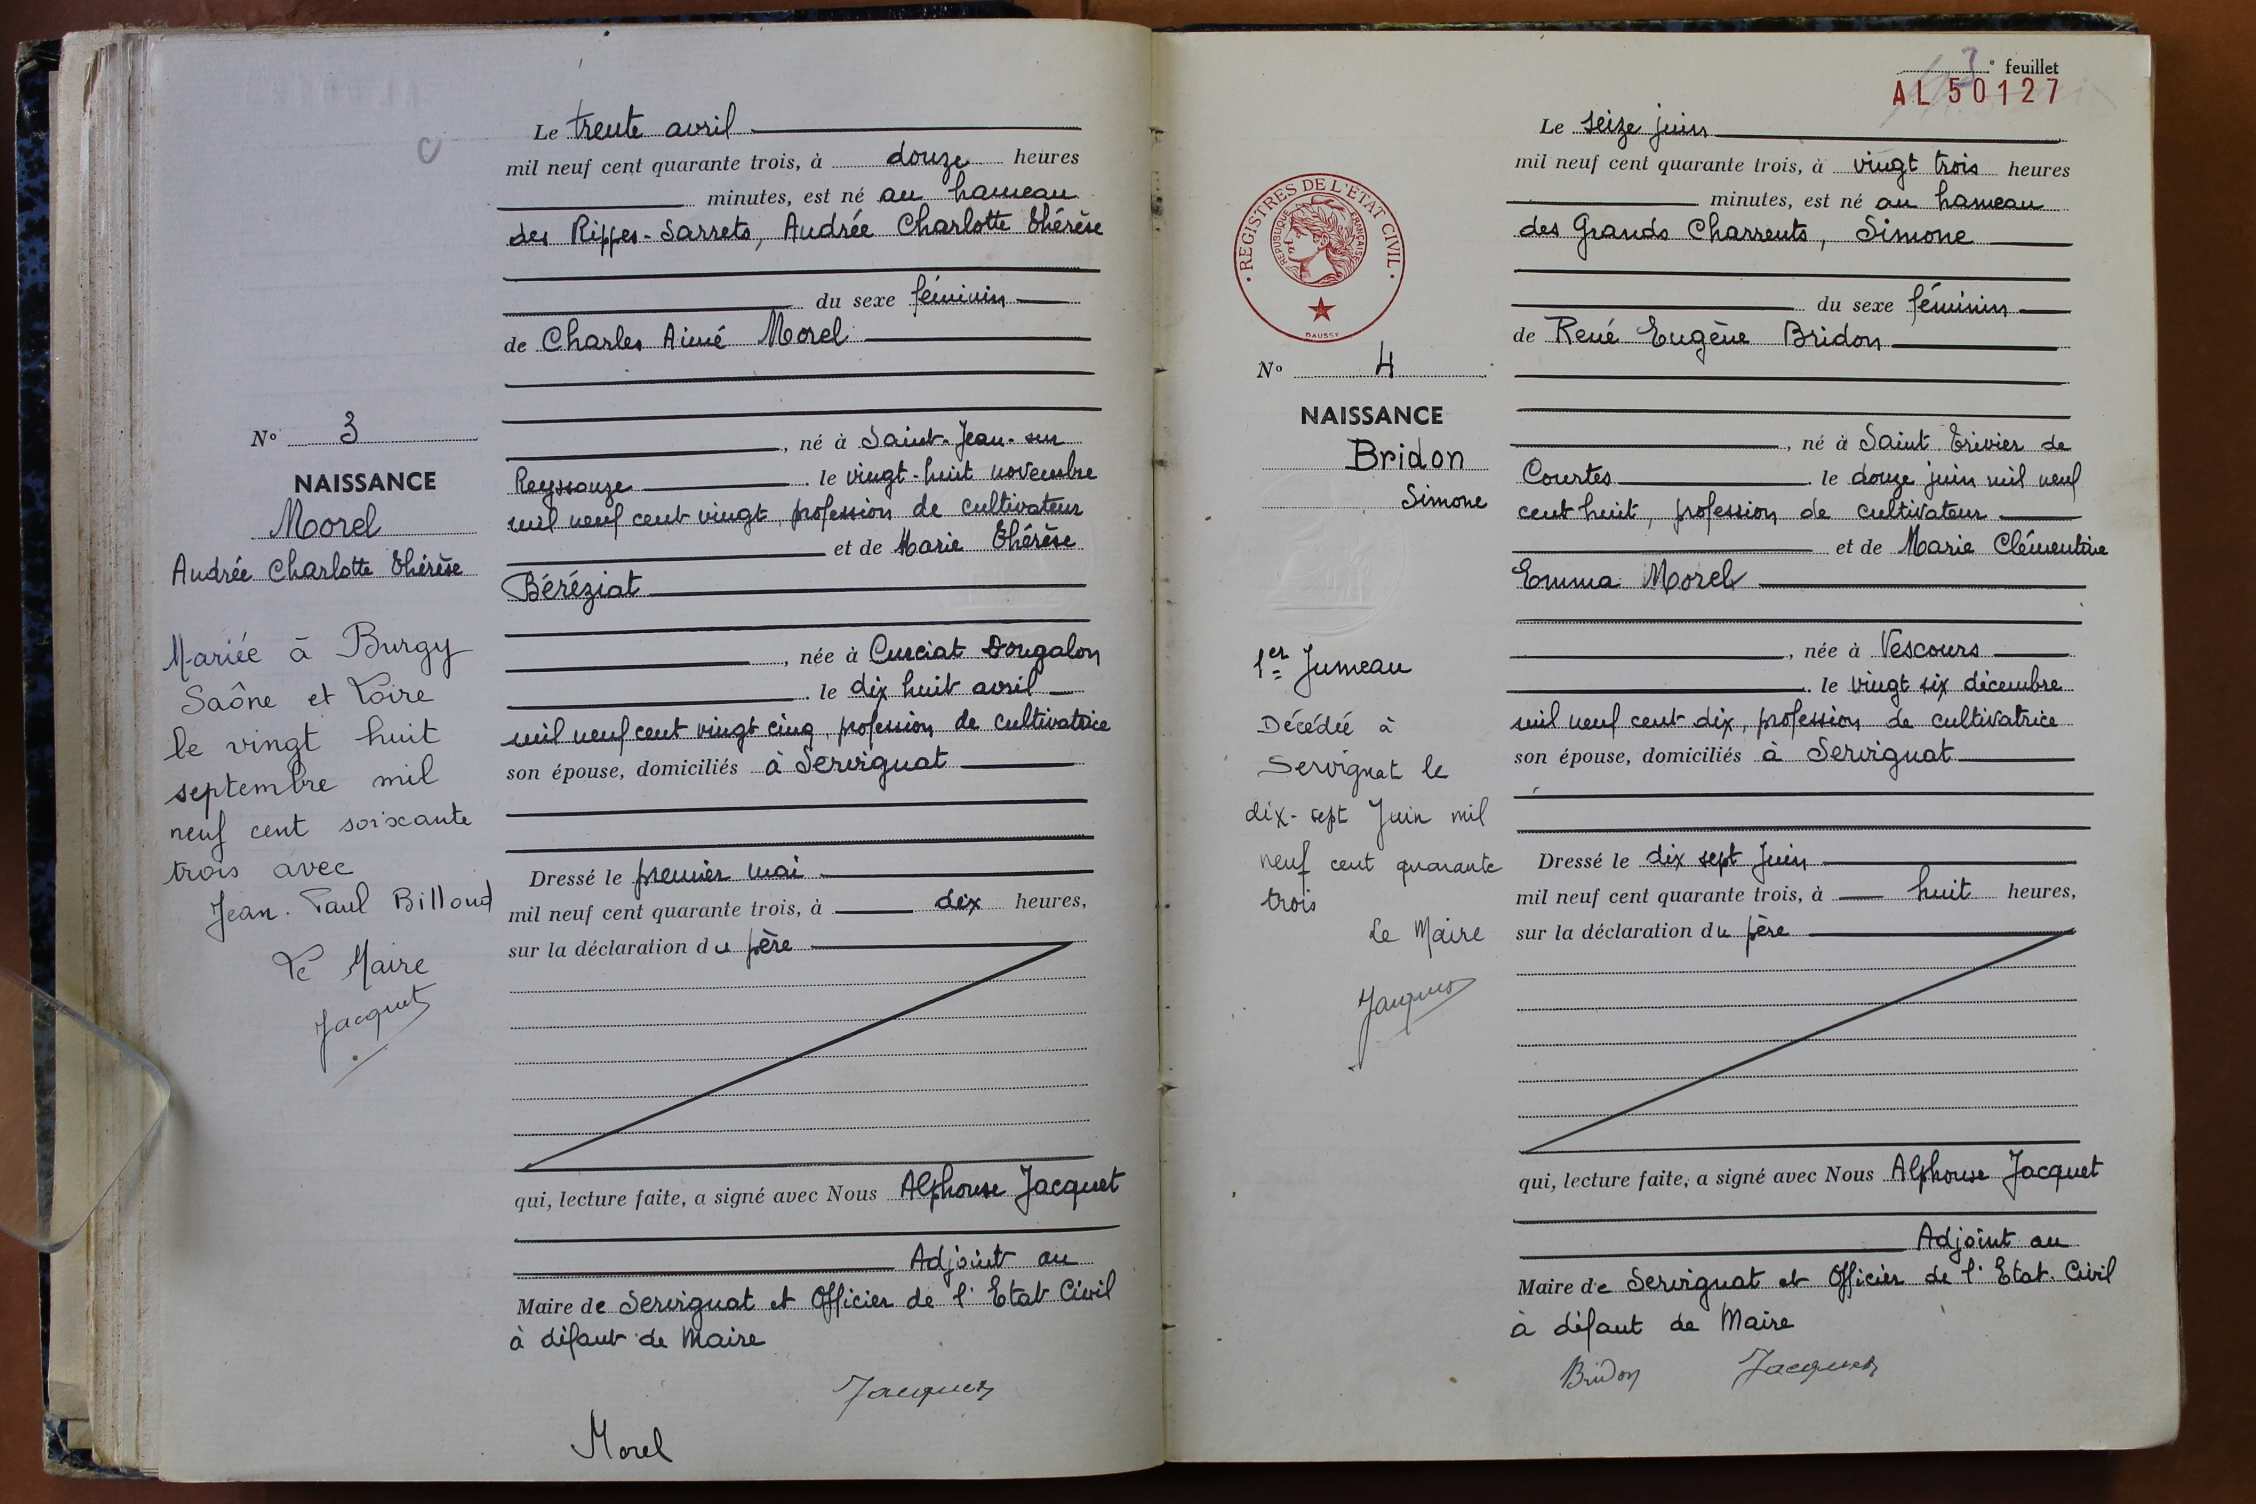 Le trente avril
mil neuf cent quarante trois, à douze heures
minutes, est né au hameau
des Rippes-Sarrets, Andrée Charlotte Thérèse
du sexe féminin
de Charles Aimé Morel
, né à Saint-Jean-sur
Reyssouze le vingt-huit novembre
mil neuf cent vingt, profession de cultivateur
et de Marie Thérèse
Béréziat
, née à Curciat Dongalon
le dix huit avril
mil neuf cent vingt cinq, profession de cultivatrice
son épouse, domiciliés à Servignat
Dressé le premier mai
mil neuf cent quarante trois, à dix heures,
sur la déclaration du père
qui, lecture faite, a signé avec Nous Alphonse Jacquet
Adjoint au
Maire de Servignat et Officier de l'Etat Civil
à défaut de Maire
Jacquet
Morel
No 3
NAISSANCE
Morel
Andrée Charlotte Thérèse
Mariée à Burgy
Saône et Loire
le vingt huit
septembre mil
neuf cent soixante
trois avec
Jean-Paul Billoud
Le Maire
Jacquet
3e feuillet
AL 50127
Le seize juin
mil neuf cent quarante trois, à vingt trois heures
minutes, est né au hameau
des Grands Charrents, Simone
du sexe féminin
de René Eugène Bridon
, né à Saint Trivier de
Courtes le douze juin mil neuf
cent huit, profession de cultivateur
et de Marie Clémentine
Emma Morel
, née à Vescours
le vingt six décembre
mil neuf cent dix, profession de cultivatrice
son épouse, domiciliés à Servignat
Dressé le dix sept Juin
mil neuf cent quarante trois, à huit heures,
sur la déclaration du père
qui, lecture faite, a signé avec Nous Alphonse Jacquet
Adjoint au
Maire de Servignat et Officier de l'Etat-Civil
à défaut de Maire
Bridon Jacquet
• REGISTRES DE L'ETAT CIVIL •
REPUBLIQUE FRANÇAISE
DAUSSY
No 4
NAISSANCE
Bridon
Simone
1er Jumeau
Décédée à
Servignat le
dix-sept Juin mil
neuf cent quarante
trois
Le Maire
Jacquet